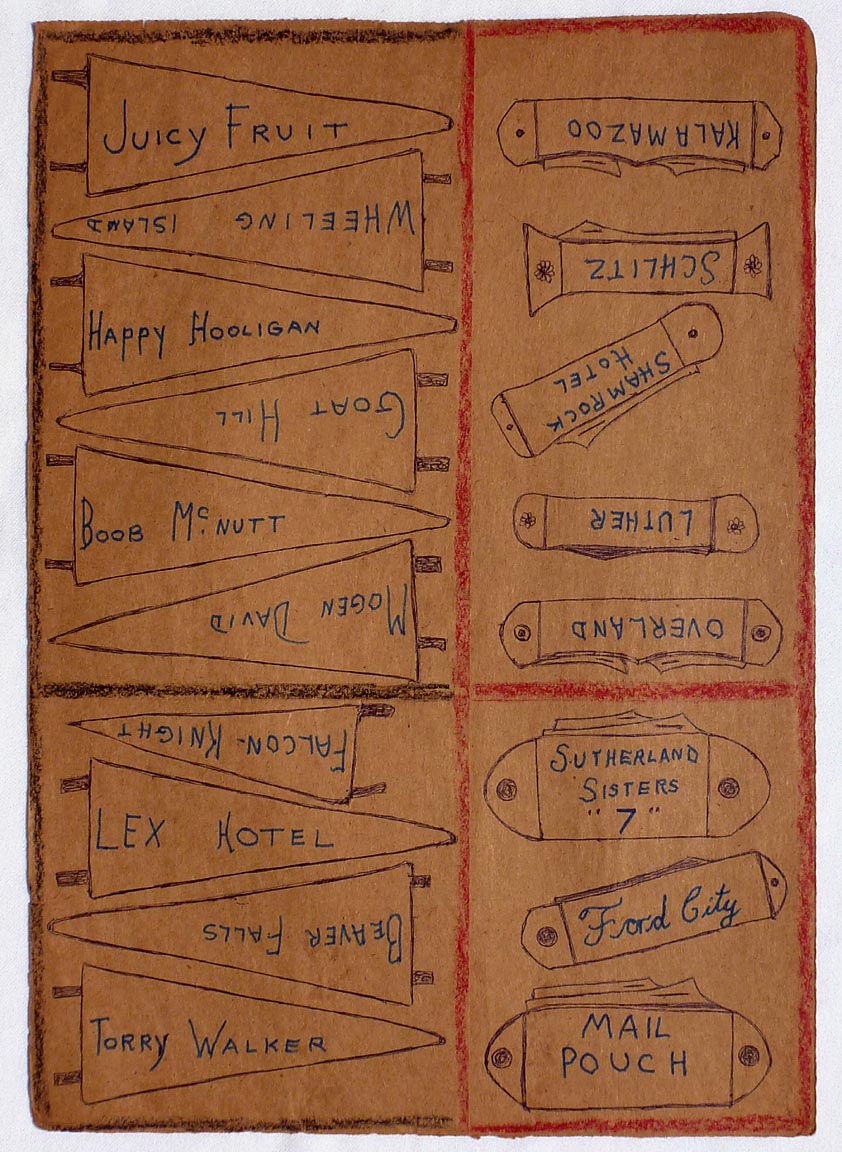 JUICY FRUIT
WHEELING ISLAND
HAPPY HOOLIGAN
GOAT HILL
BOOB Mc. NUTT
MOGEN DAVID
FALCON-KNIGHT
LEX HOTEL
BEAVER FALLS
TORRY WALKER
KALAMAZOO
SCHLITZ
SHAMROCK
HOTEL
LUTHER
OVERLAND
SUTHERLAND
SISTERS
"7"
Ford City
MAIL
POUCH